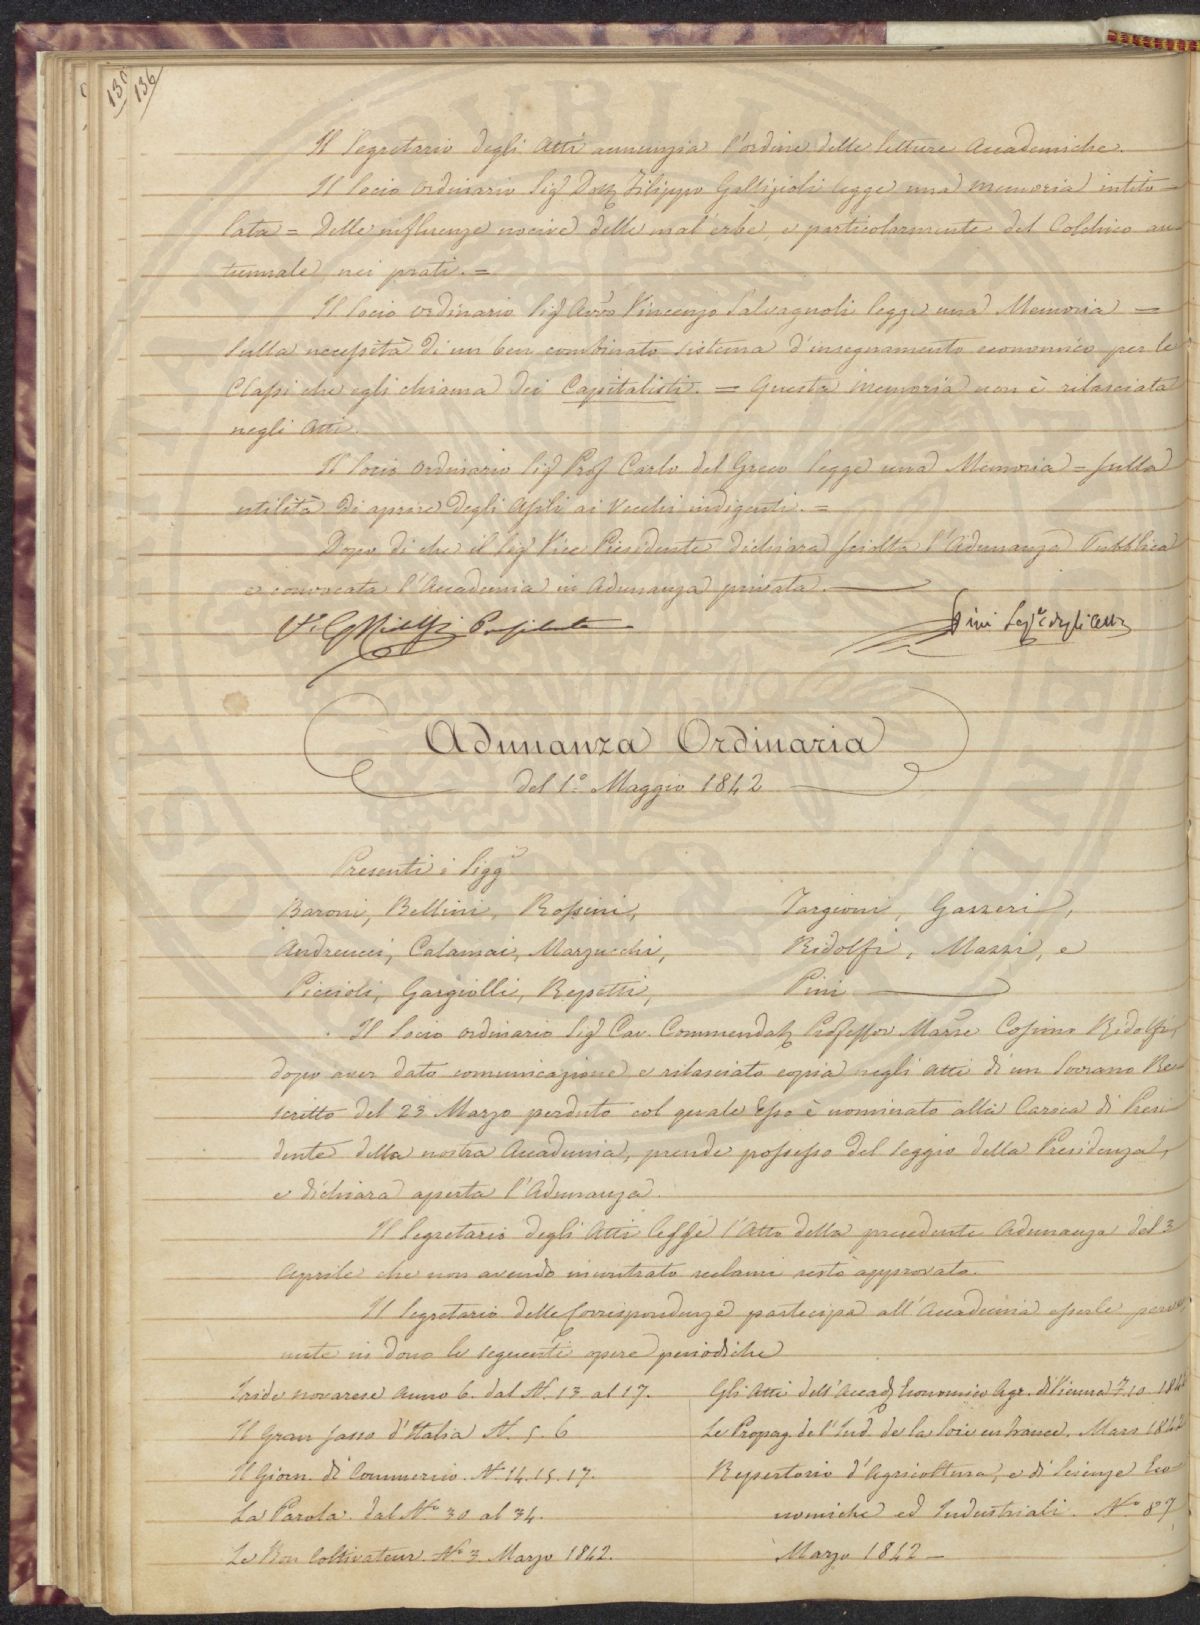 130
136
Il Segretario degli Atti annunzia l'ordine delle letture Accademiche.
Il Socio Ordinario Sig. Dott. Filippo Gallizioli legge una memoria intito=
lata = Delle influenze nocive delle mal'erbe, e particolarmente del Colchico au=
tunnale nei prati. =
Il Socio Ordinario Sig. Avvo Vincenzo Salvagnoli legge una Memoria =
Sulla necessità di un ben combinato sistema d'insegnamento economico per le
Classi che egli chiama dei Capitalisti. = Questa memoria non è rilasciata
negli Atti.
Il Socio Ordinario Sig. Prof. Carlo del Greco legge una Memoria = sulla
utilità di aprire degli Asili ai Vecchi indigenti. =
Dopo di che il Sig. Vice Presidente dichiara sciolta l'Adunanza Pubblica
e convocata l'Accademia in Adunanza privata.
Presidente
Pini Seg.e degli Atti
Adunanza Ordinaria
del 1.° Maggio 1842
Presenti i Sigg.
Baroni, Bellini, Rossini, Targioni, Gazzeri,
Andreucci, Calamai, Marzucchi, Ridolfi, Mazzi, e
Piccioli, Gargiolli, Repetti, Pini
Il Socio ordinario Sig. Cav. Commendat. Professor Marse Cosimo Ridolfi,
dopo aver dato comunicazione e rilasciato copia negli Atti di un Sovrano Re=
scritto del 23 Marzo perduto col quale Esso è nominato alla Carica di Presi
dente della nostra Accademia, prende possesso del seggio della Presidenza,
e dichiara aperta l'Adunanza.
Il Segretario degli Atti lesse l'Atto della precedente Adunanza del 3
Aprile che non avendo incontrato reclami restò approvato.
Il Segretario delle Corrispondenze partecipa all'Accademia esserle perve
nute in dono le seguenti opere periodiche
Iride novarese Anno 6. dal N. 13 al 17.
Il Gran Sasso d'Italia N. 5. 6
Il Giorn. di Commercio. N. 14. 15. 17.
La Parola. dal N.° 30 al 34.
Le Bon Coltivateur. N.° 3 Marzo 1842.
Gli Atti dell'Accad. Economico Agr. di Vienna
Le Propag. de l'Ind. de la Soie en France. Mars 1842
Repertorio d'Agricoltura, e di Scienze Eco
nomiche ed Industriali. N.° 87
Marzo 1842 —